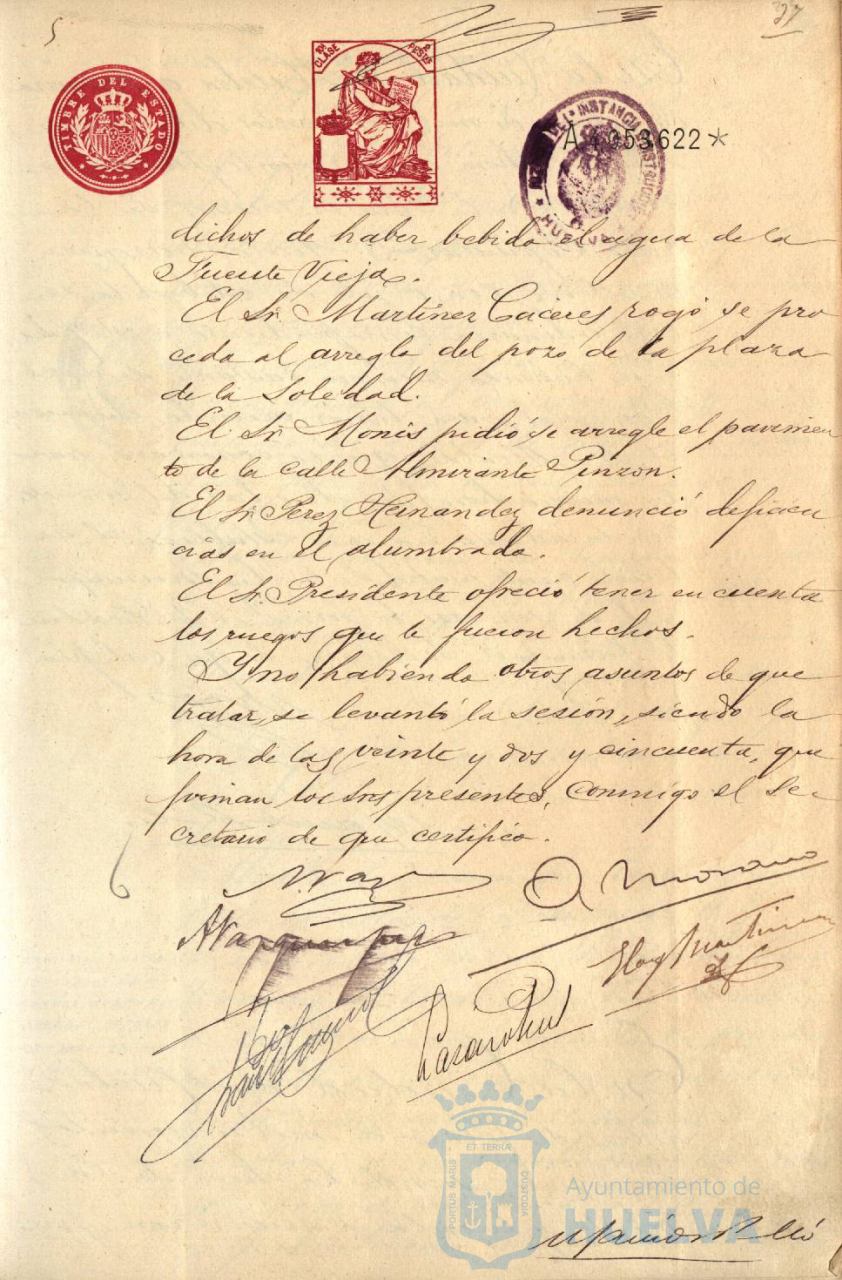 5
27
TIMBRE DEL ESTADO
CLASE
PESETAS
A4053622*
INSTANCIA
HUELVA
dichos de haber bebido el agua de la
Fuente Vieja.
El Sr. Martinez Caceres rogó se pro
ceda al arreglo del pozo de la plaza
de la Soledad.
El Sr. Monis pidió se arregle el pavimen
to de la calle Almirante Pinzon.
El Sr. Perez Hernandez denunció deficien
cias en el alumbrado.
El Sr. Presidente ofreció tener en cuenta
los ruegos que le fueron hechos.
Y no habiendo otros asuntos de que
tratar, se levantó la sesión, siendo la
hora de las veinte y dos y cincuenta, que
firman los Sres presentes, conmigo el Se
cretario de que certifico.
Eloy Martinez
PORTUS MARIS ET TERRÆ CUSTODIA
Ayuntamiento de
HUELVA